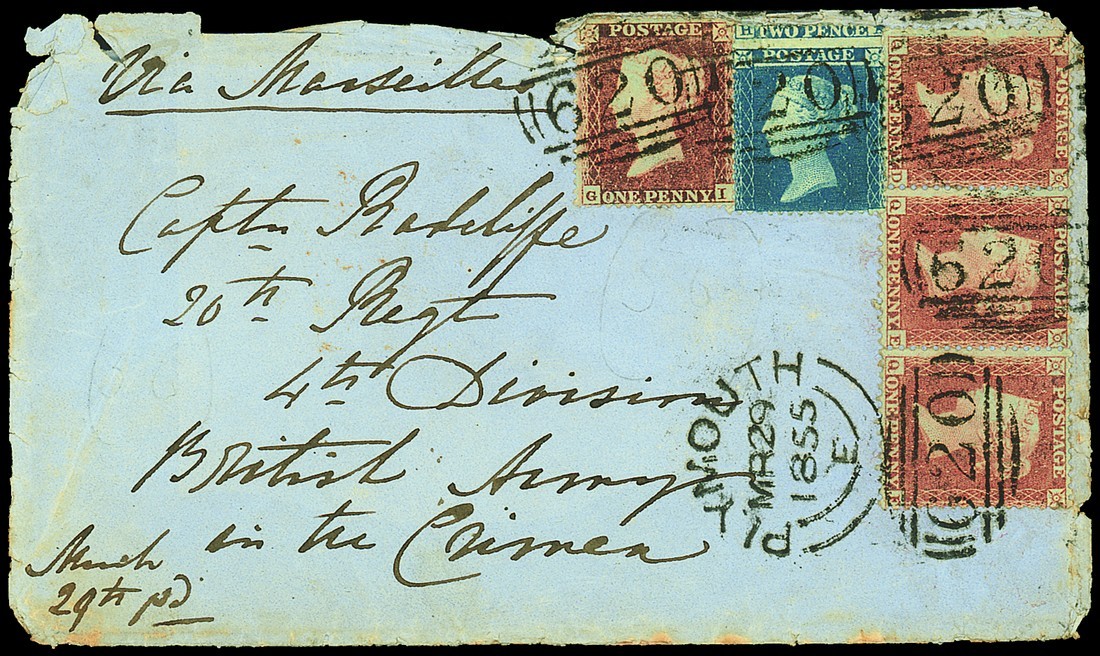 Via Marseilles
POSTAGE
G ONE PENNY I
TWO PENCE
POSTAGE
POSTAGE
ONE PENNY
POSTAGE
ONE PENNY
POSTAGE
ONE PENNY
620
20
20
620
620
Captn Radcliffe
20th Regt
4th Division
British Army
in the Crimea
March
29th pd
PLYMOUTH
MR29
1855
E